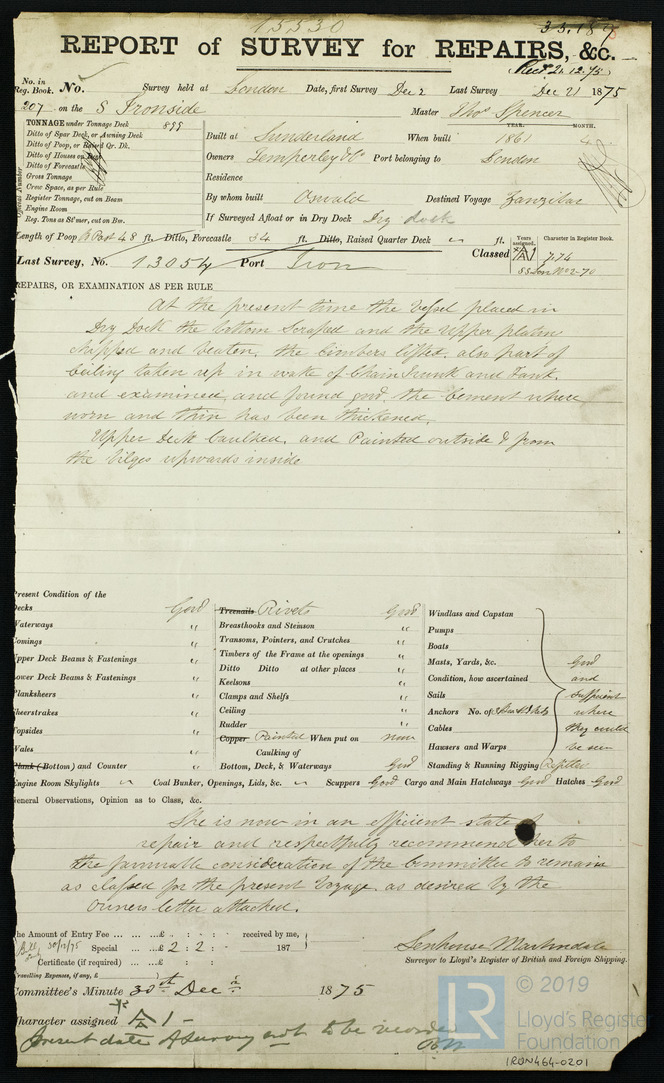 15530
REPORT of SURVEY for REPAIRS, &c.
Recd 21.12.75
No. in Reg. Book. No. Survey held at London Date, first Survey Dec 2 Last Survey Dec 21 1875
207 on the S Ironside Master Thos Spencer
TONNAGE under Tonnage Deck 899
Ditto of Spar Deck, or Awning Deck
Ditto of Poop, or Raised Qr. Dk.
Ditto of Houses on Deck
Ditto of Forecastle
Gross Tonnage
Crew Space, as per Rule
Register Tonnage, cut on Beam
Engine Room
Reg. Tons as St'mer, cut on Bm.
Official Number
YEAR. MONTH.
Built at Sunderland When built 1861 4
Owners Temperley & Co Port belonging to London
Residence
By whom built Oswald Destined Voyage Zanzibar
If Surveyed Afloat or in Dry Dock Dry dock
Length of Poop 48 ft. Ditto, Forecastle 34 ft. Ditto, Raised Quarter Deck ft.
Classed
Years assigned. Character in Register Book.
A1 7,74
Last Survey, No. 13054 Port Iron
REPAIRS, OR EXAMINATION AS PER RULE
At the present time the Vessel placed in
Dry Dock the bottom Scraped and the Upper plating
chapped and beaten. the Limbers lifted. also part of
Ceiling taken up in wake of Chain Trunk and Tank.
and examined, and found good, the Cement where
worn and thin has been thickened.
Upper Deck Caulked, and Painted outside & from
the bilges upwards inside
Present Condition of the
Decks Good
Waterways "
Comings "
Upper Deck Beams & Fastenings "
Lower Deck Beams & Fastenings "
Planksheers "
Sheerstrakes "
Topsides "
Wales "
Plank (Bottom) and Counter "
Treenails Rivets Good
Breasthooks and Stemson "
Transoms, Pointers, and Crutches "
Timbers of the Frame at the openings "
Ditto Ditto at other places "
Keelsons "
Clamps and Shelfs "
Ceiling "
Rudder "
Copper Painted When put on now
Caulking of
Bottom, Deck, & Waterways Good
Windlass and Capstan
Pumps
Boats
Masts, Yards, &c. Good
Condition, how ascertained and
Sails Sufficient
Anchors No. of where
Cables they could
Hawsers and Warps be seen
Standing & Running Rigging Refitted
Engine Room Skylights " Coal Bunker, Openings, Lids, &c. " Scuppers Good Cargo and Main Hatchways Good Hatches Good
General Observations, Opinion as to Class, &c.
She is now in an efficient state of
repair and respectfully recommend her to
the favourable consideration of the Committee to remain
as classed for the present Voyage. as desired by the
Owners letter attached.
The Amount of Entry Fee ... ... ...£ : : received by me,
30/12/75 Special ... ...£ 2 : 2 : - 187
Certificate (if required) ... ...£ : :
Travelling Expenses, if any, £
Senhouse Martindale
Surveyor to Lloyd's Register of British and Foreign Shipping.
Committee's Minute 30th Decr 1875
Character assigned A 1 -
Present date of Survey not to be recorded
© 2019
LR
Lloyd's Register
Foundation
IRON464-0201